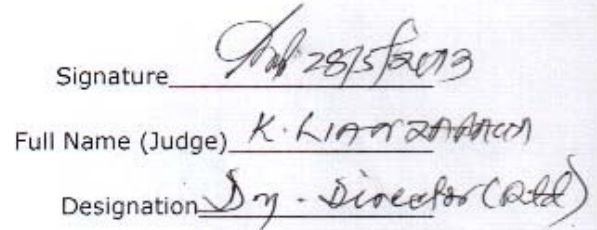 Signature 28/5/2013
Full Name (Judge) K.
Designation Dy. Director (Rtd)